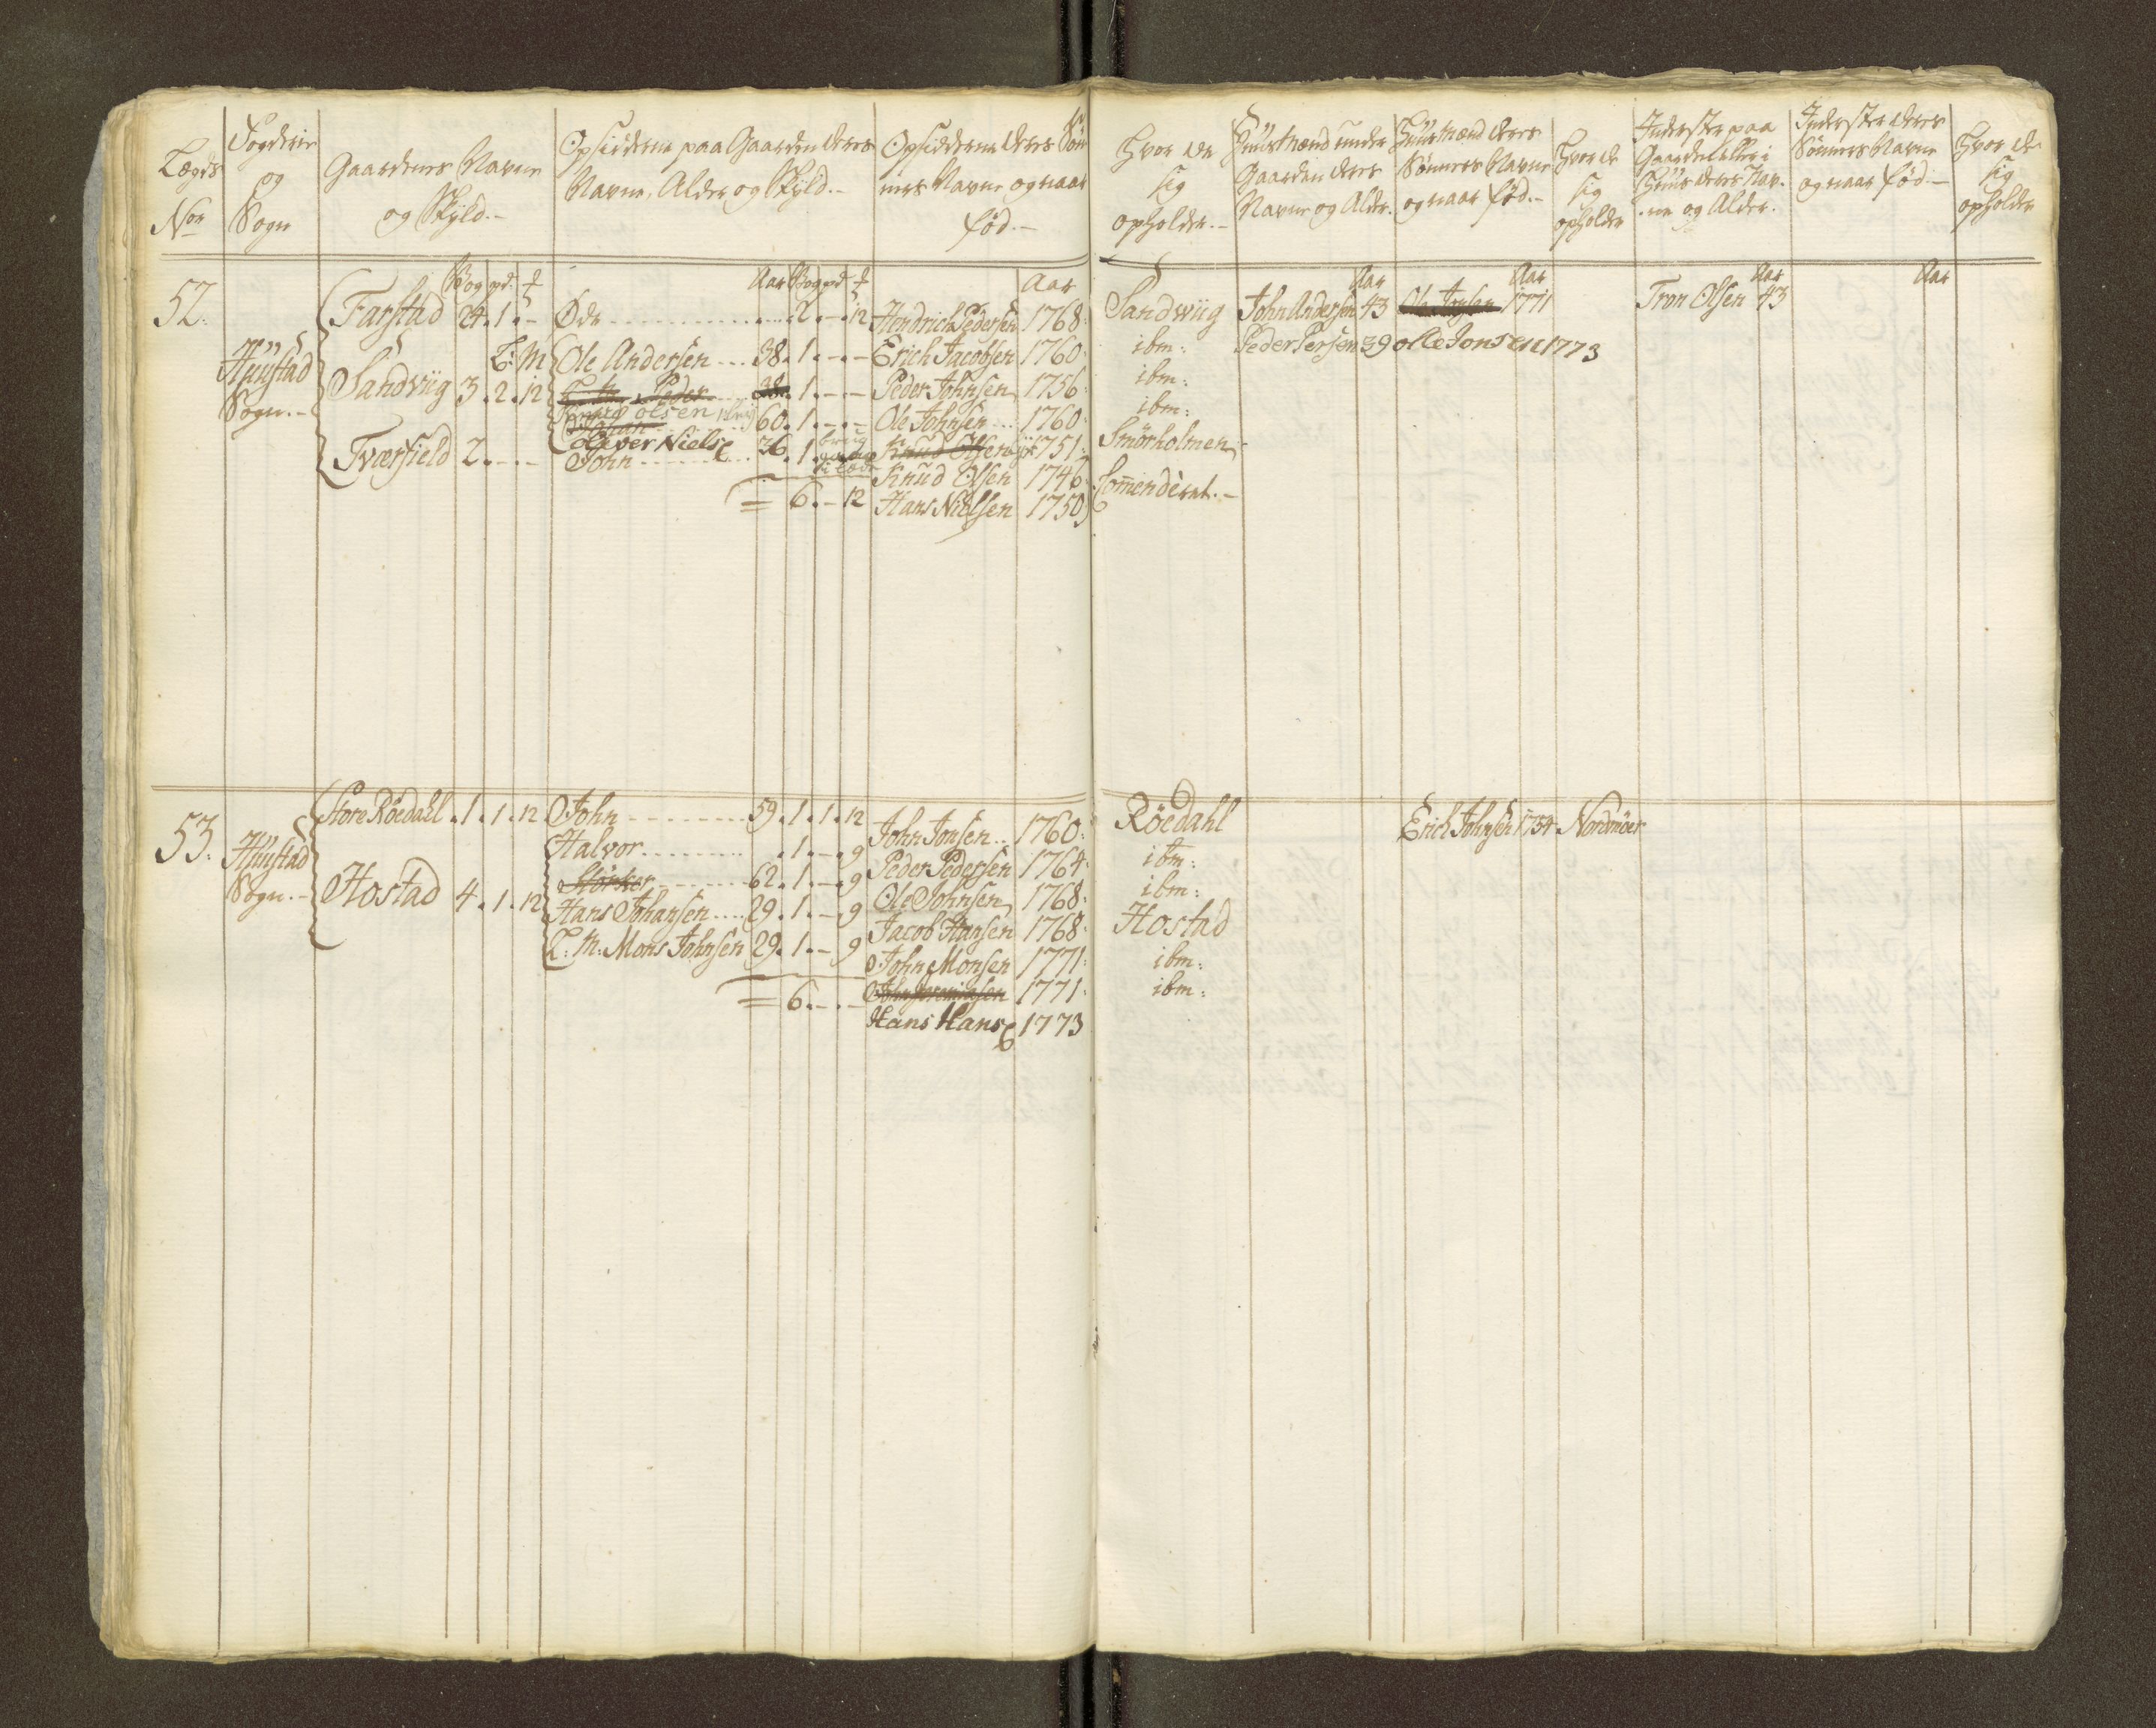 Lægds
No
Fogderie
og
Sogn
Gaardenes Navne
og Skyld.-
Opsidderne paa Gaarden deres
Navne, Alder og Skyld.-
Opsidderne deres Søn-
ners Navne og naar
fød.-
Hvor de
sig
opholder.-
Huusmænd under
Gaarden deres
Navne og Alder.
Huusmænd deres
Sønners Navne
og naar fød.-
Hvor de
sig
opholde
Inderster paa
Gaarden eller i
Huus deres Nav-
ne og Alder.
Inderster deres
Sønners Navne
og naar fød.-
Hvor de
sig
opholde
Wog pd.
Aar Wog pd
Aar
Aar
Aar
Aar
Aar
52.
Hüüstad
Sogn.-
Farstad 24. 1. -
Sandviig 3. 2. 12
Tværfield 2. - -
Øde 2. - 12
L: M Ole Andersen 38. 1. - -
Peder 38. 1. - -
Knud olsen
Johan 60. 1. - -
olever Niels
John 36. 1.
= 6. - 12
Hendrich Pedersen 1768.
Erich Jacobsen 1760.
Peder Johnsen 1756.
Ole Johnsen 1760.
Knud Olsen 1751.
Knud Olsen 1746.
Hans Nielsen 1750
Sandwiig
ibm:
ibm:
ibm:
Smörholmen
Comenderet.-
John Andersen 43
Peder Persen 39
Ole Jonsen 1771
olle Jonsen 1773
Tron Olsen 43
53.
Hüüstad
Sogn.-
Store Röedahl. 1. 1. 12
Hostad 4. 1. 12
John 59. 1. 1. 12
Halvor 1. - 9
Störker 62. 1. - 9
Hans Johansen 29. 1. - 9
L: M: Mons Johnsen 29. 1. - 9
= 6. - -
John Jonsen 1760.
Peder Pedersen 1764.
Ole Johnsen 1768.
Jacob Hansen 1768.
John Monsen 1771.
1771.
Hans Hans 1773
Röedahl
ibm:
ibm:
Hostad
ibm:
ibm:
Erich Johnsen 1754. Nordmöer